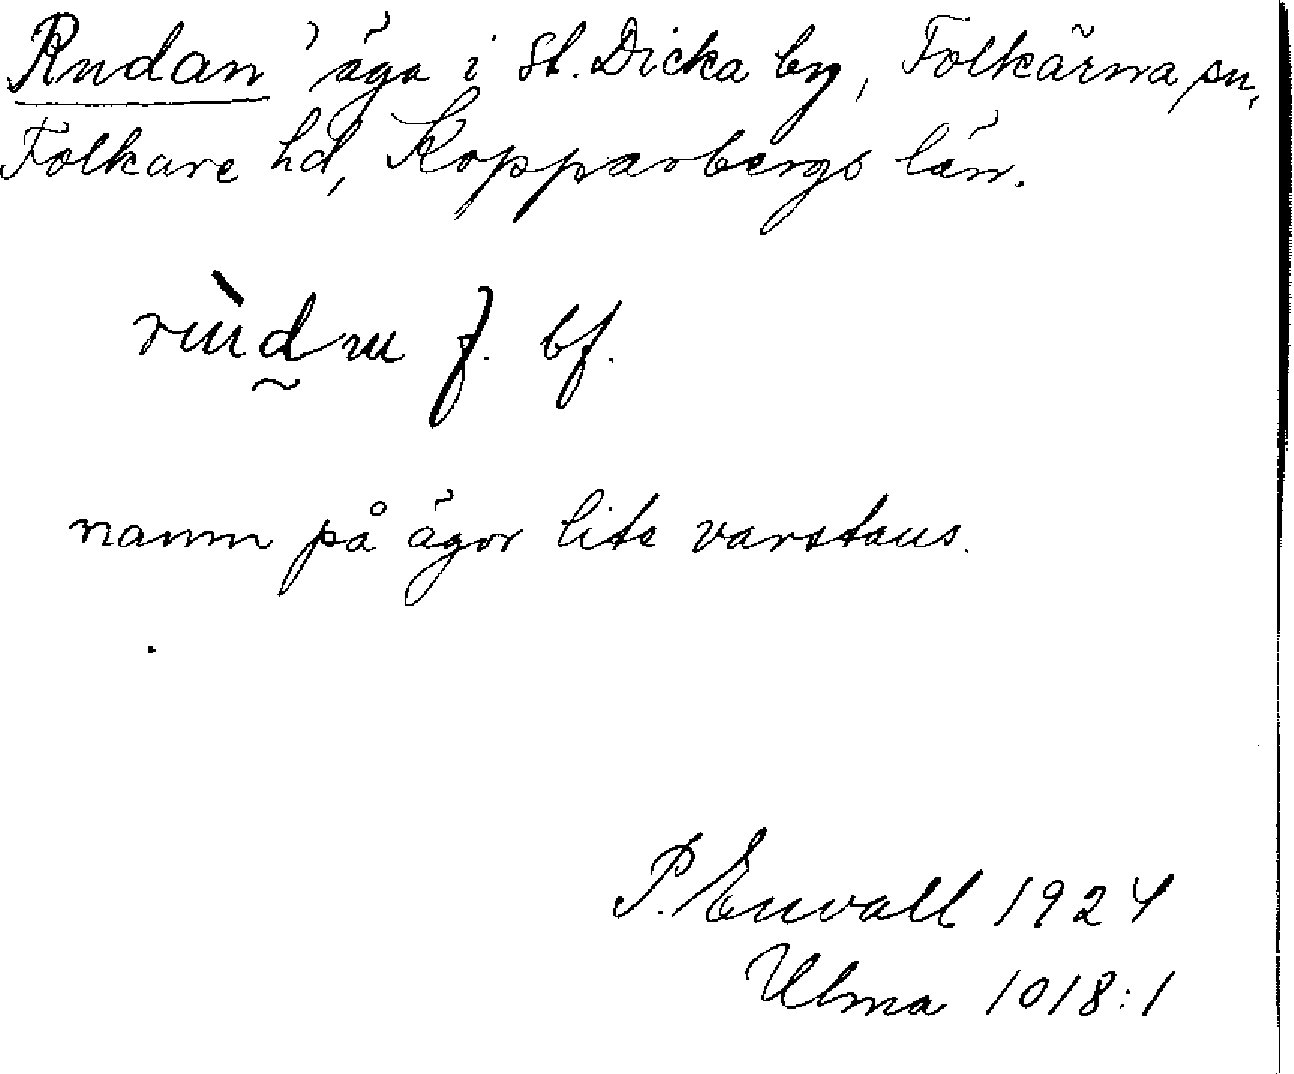 Rudan, äga i St. Dicka by, Folkärna sn,
Folkare hd, Kopparbergs län.
f. bf.
namn på ägor lite varstans.
P. Envall 1924
Ulma 1018:1